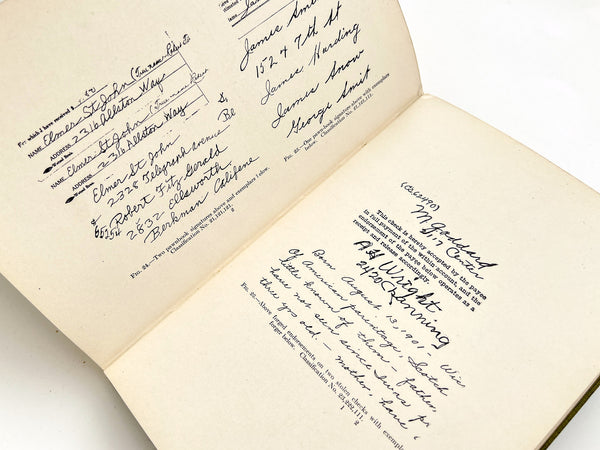 For which I have received $
NAME Elmer St John (True name Robert
ADDRESS 2316 Allston Way
NAME Elmer St John (True name Robert
ADDRESS 2316 Allston Way
Elmer St John
2328 Telegraph avenue
& Robert Fitz Gerald
2832 Ellsworth.
Berkman Califene
FIG. 24.—Two pawnbook signatures above and exemplars below.
Classification No. 21,121,121.
2
James Smit
1524 7th St
James Harding
James Snow
George Smit
FIG. 23.—One pawnbook signature above with exemplars
below. Classification No. 21,222,111.
M Geddard
817 Center
This check is hereby accepted by the payee
in full payment of the within account, and the
endorsement of the payee below operates as a
receipt and release accordingly.
A H Wright
2420 Channing
Born August 13, 1901,— Wis
Of American parentage, Scotch
little known of them — father,
have not seen since I was
three yrs old. — mother, have
FIG. 22.—Above forged endorsements on two stolen checks with
forger below. Classification No. 21,222,111.
1 2